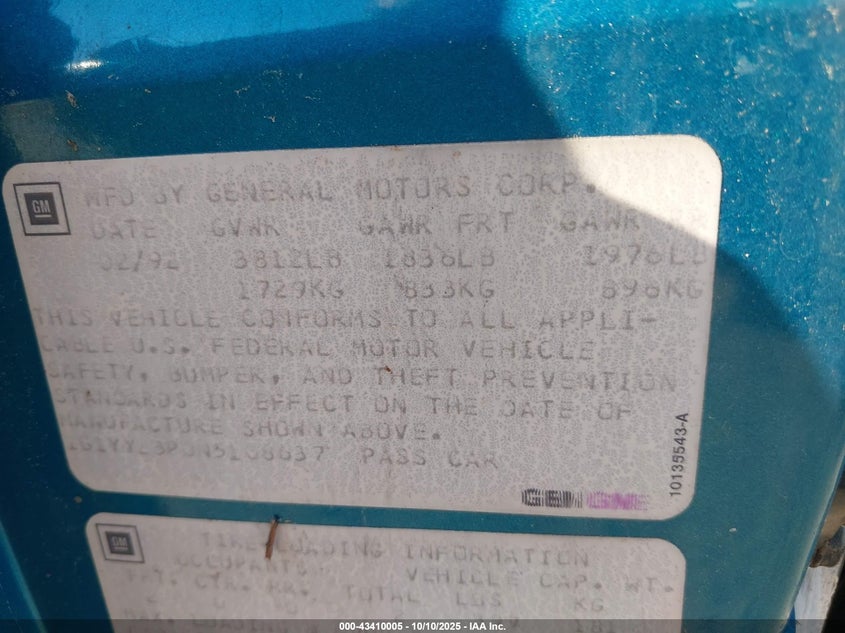 GM
MFD BY GENERAL MOTORS CORP.
DATE GVWR GAWR FRT GAWR
02/92 3812LB 1836LB 1976LB
1729KG 833KG 896KG
THIS VEHICLE CONFORMS TO ALL APPLI-
CABLE U.S. FEDERAL MOTOR VEHICLE
SAFETY, BUMPER, AND THEFT PREVENTION
STANDARDS IN EFFECT ON THE DATE OF
MANUFACTURE SHOWN ABOVE.
PASS CAR
10135543-A
GM
TIRE-LOADING INFORMATION
OCCUPANTS VEHICLE CAP. WT.
FRT. CTR. RR. TOTAL LBS KG
000-43410005 - 10/10/2025 - IAA Inc.